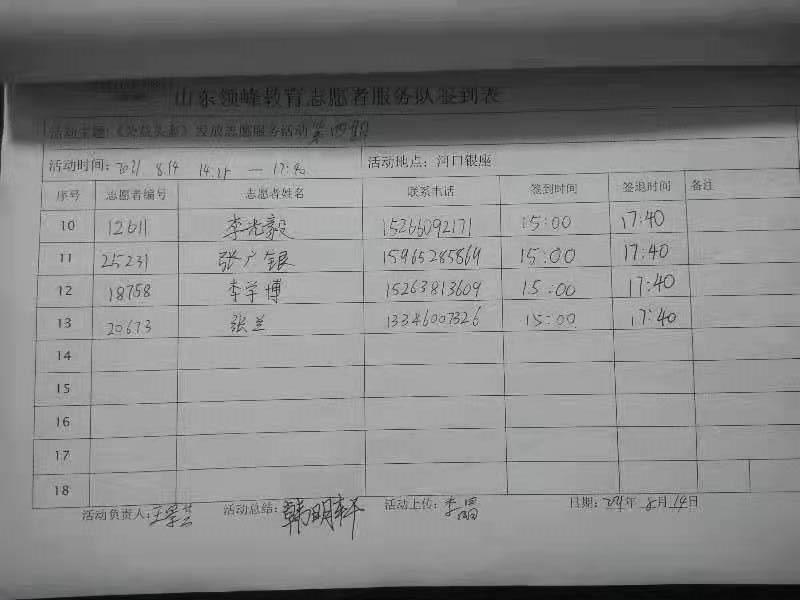 山东领峰教育志愿者服务队签到表
活动主题:《公益头条》发放志愿服务活动 第四期
活动时间: 2021 8.14 14:25 — 17:40 活动地点: 河口银座
序号 志愿者编号 志愿者姓名 联系电话 签到时间 签退时间 备注
10 12611 李光毅 15266092171 15:00 17:40
11 25231 张广银 15965285869 15:00 17:40
12 18758 李学博 15263813609 15:00 17:40
13 20673 张兰 13346007326 15:00 17:40
14
15
16
17
18
活动负责人: 活动总结: 韩明轩 活动上传: 日期: 2021年 8月 14日